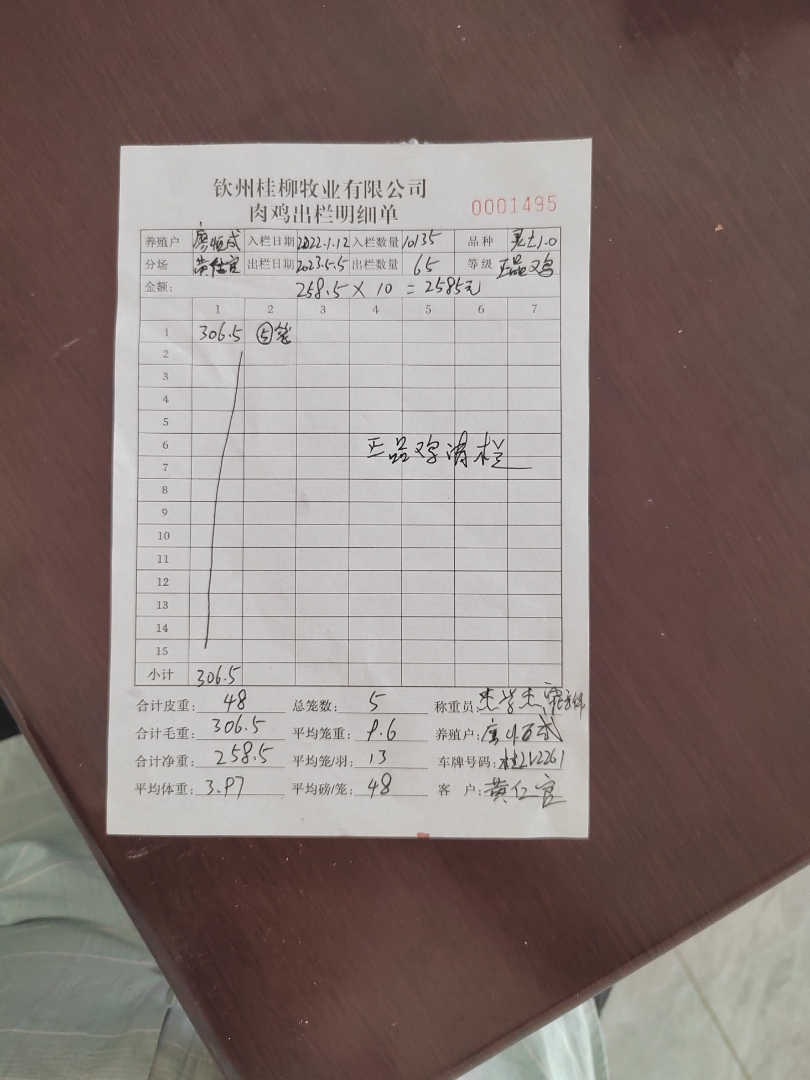 钦州桂柳牧业有限公司
肉鸡出栏明细单 0001495
养殖户 廖恒成 入栏日期 2022.1.12 入栏数量 10135 品种 1.0
分场 黄仕宜 出栏日期 2023.5.5 出栏数量 65 等级 正品鸡
金额: 258.5 × 10 = 2585元
1 2 3 4 5 6 7
1 306.5 ⑤笼
2
3
4
5
6 正品鸡清栏
7
8
9
10
11
12
13
14
15
小计 306.5
合计皮重: 48 总笼数: 5 称重员:
合计毛重: 306.5 平均笼重: 9.6 养殖户:
合计净重: 258.5 平均笼/羽: 13 车牌号码: 桂2V2261
平均体重: 3.97 平均磅/笼: 48 客 户: 黄仁宜